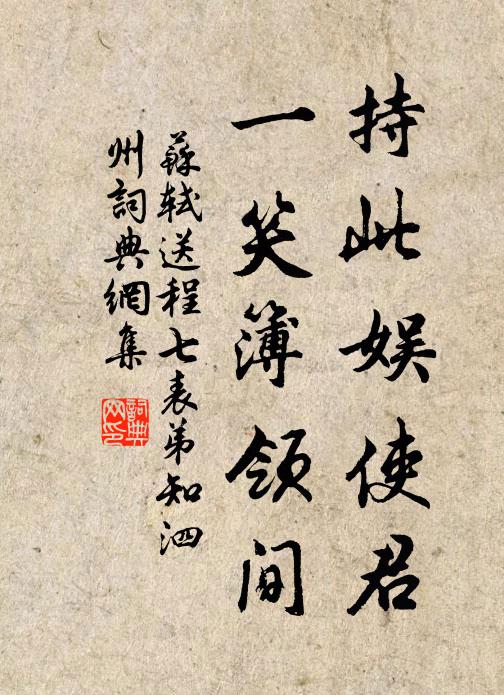 持此娱使君
一笑簿领间
蘇軾送程七表弟知泗
州詞典網集
詞典网印